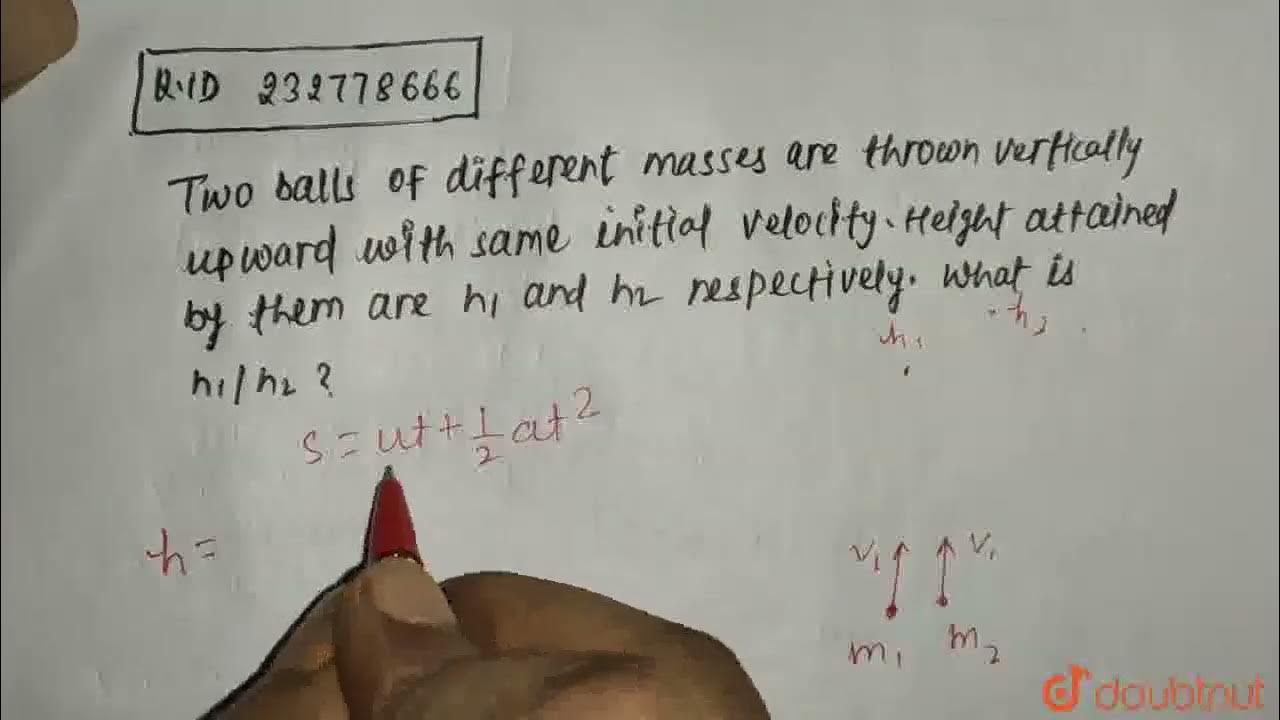 Q.ID 232778666
Two balls of different masses are thrown vertically
upward with same initial velocity. Height attained
by them are h₁ and h₂ respectively. What is
h₁/h₂ ?
h₁ h₂
s = ut + 1/2 at²
h =
v₁ v₁
m₁ m₂
doubtnut